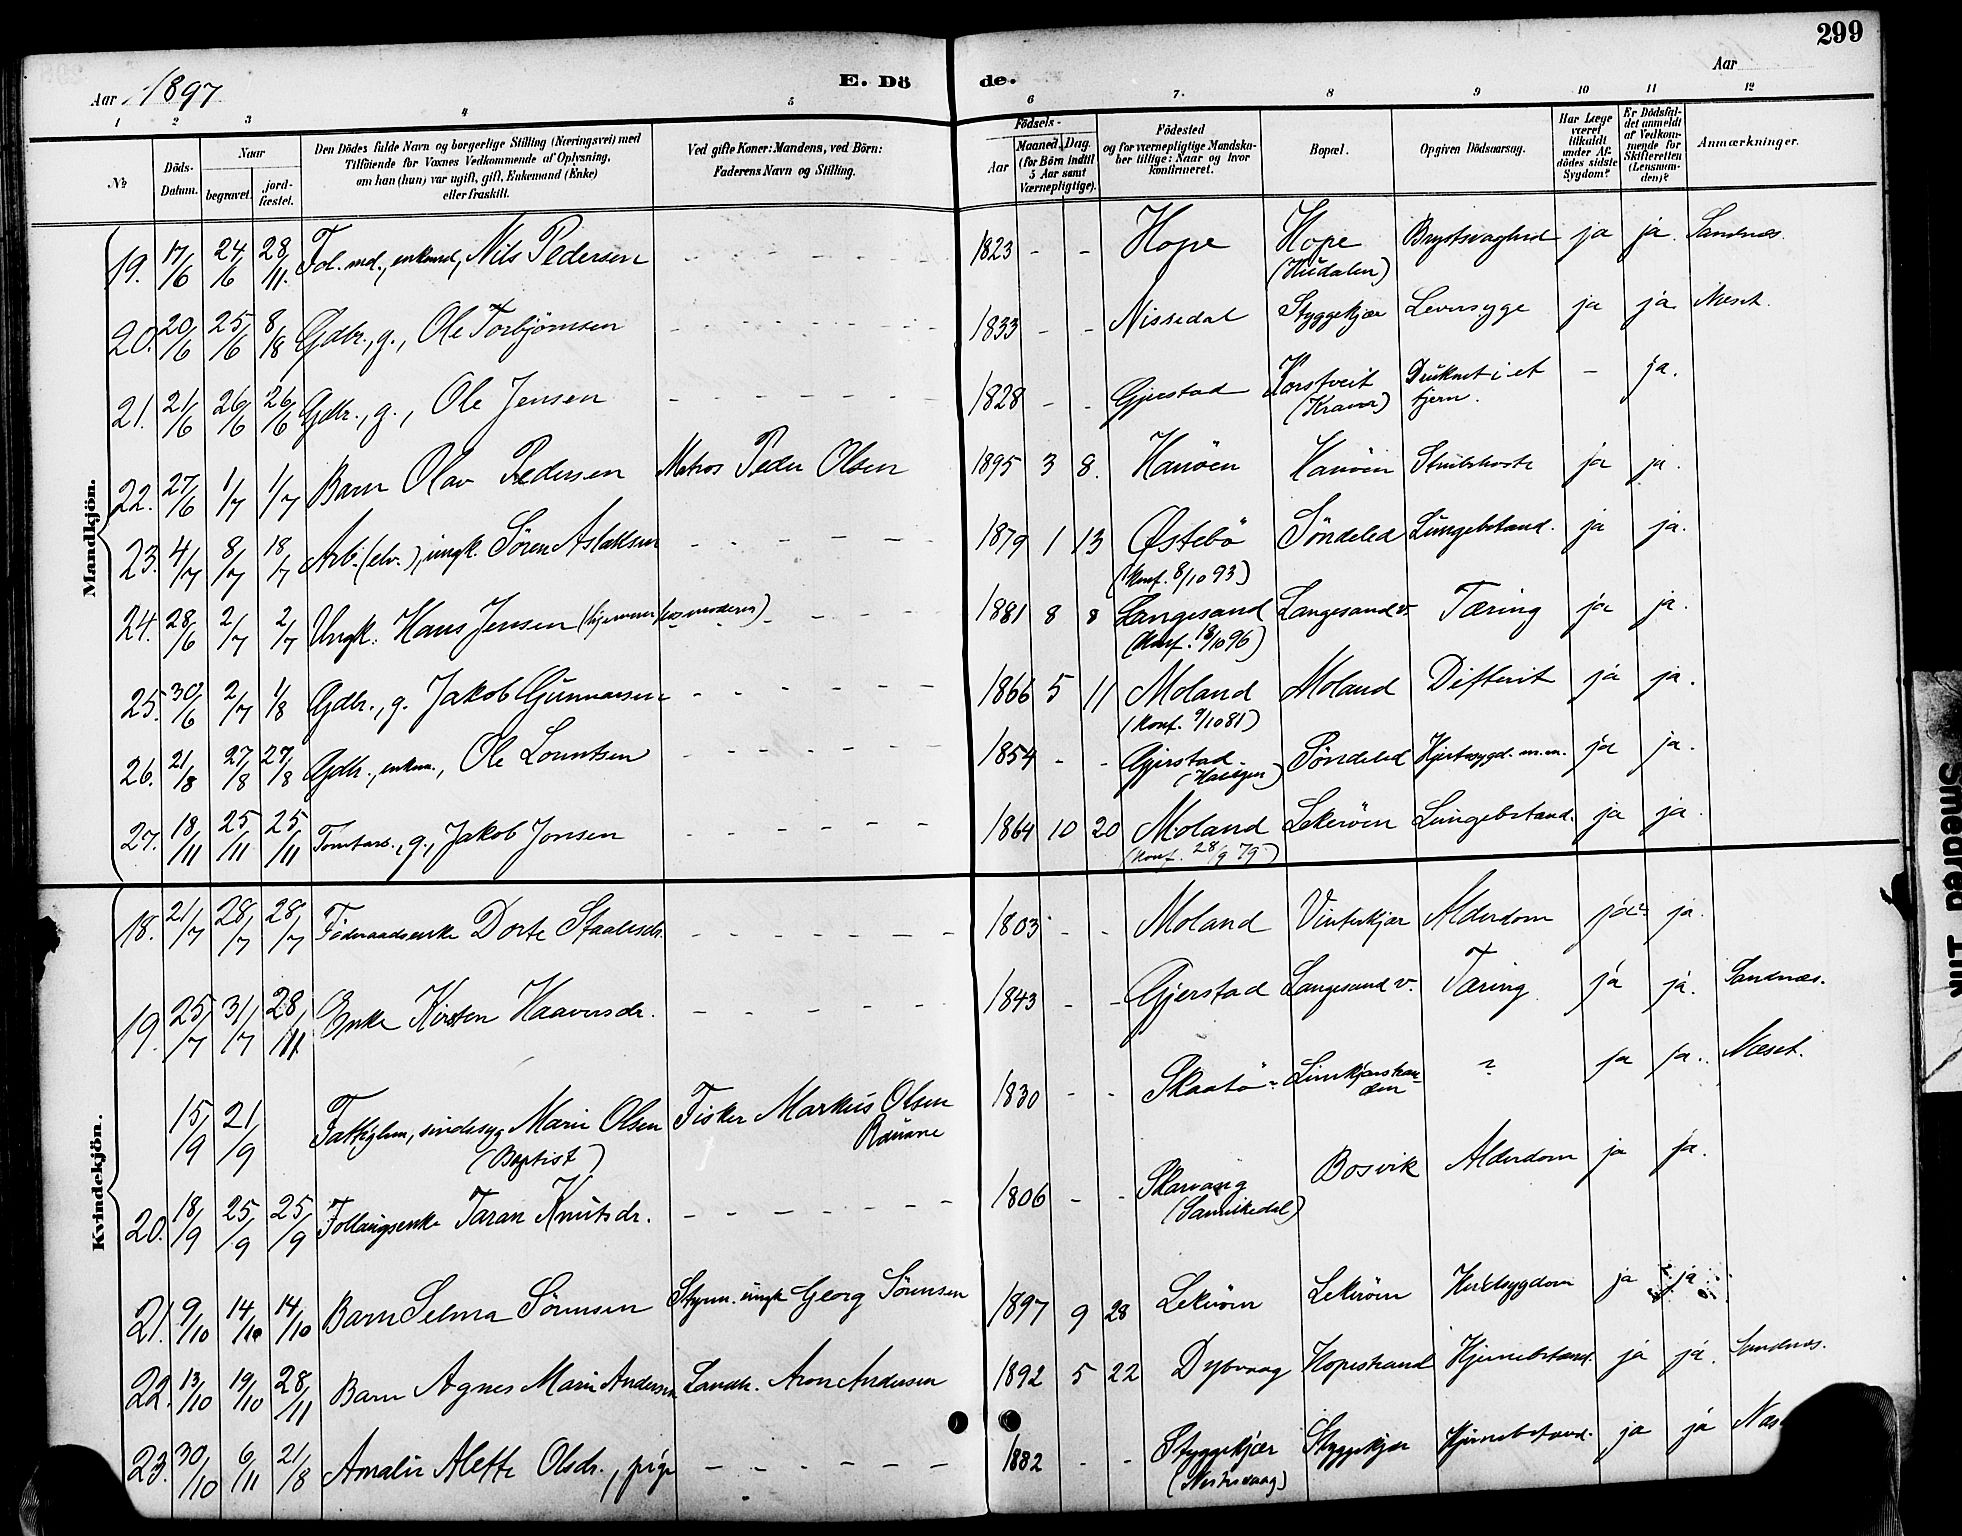 299
Aar 1897
E. Dö de.
Aar
1 2 3 4 5 6 7. 8 9 10 11 12
№
Döds-Datum.
Naar
begravet.
jord-fæstet.
Den Dödes fulde Navn og borgerlige Stilling (Næringsvei) med
Tilföiende for Voxnes Vedkommende af Oplysning,
om han (hun) var ugift, gift, Enkemand (Enke)
eller fraskilt.
Ved gifte Koner: Mandens, ved Börn:
Faderens Navn og Stilling.
Födsels-
Aar
Maaned. Dag.
(for Börn indtil
5 Aar samt
Værnepligtige).
Födested
og for værnepligtige Mandska-
ber tillige: Naar og hvor
konfirmeret.
Bopæl.
Opgiven Dödsaarsag.
Har Læge
været
tilkaldt
under Af-
dödes sidste
Sygdom?
Er Dödsfal-
det anmeldt
af Vedkom-
mende for
Skifteretten
(Lensman-
den)?
Anmærkninger.
Mandkjön.
19. 17/6 24/6 28/11. Fol. md., enkemd, Nils Pedersen - - - 1823 - - Hope Hope Brystsvaghed ja ja. Sandnæs.
20. 20/6 25/6 8/18 Gdbr., g., Ole Torbjörnsen - - - 1833 - - Nissedal Styggekjær Leversyge ja ja. Næset.
21. 21/6 26/6 26/6 Gdbr., g., Ole Jensen - - - 1828 - - Gjerstad Korstveit Druknet i et - ja.
tjern.
22. 27/6 1/7 1/7 Barn Olav Pedersen Matros Peder Olsen 1895 3 8. Havöen Havöen Strubehoste ja ja.
23. 4/7 8/7 18/7 Arb. (elv.), ungk. Sören Aslaksen - - - 1879 1 13 Østebö Söndeled Lungebetænd. ja ja.
(konf. 8/10 93)
24. 28/6 2/7 2/7 Ungk. Hans Jensen (hjemme hos moderen) - - 1881 8 8 Langesand Langesand v. Tæring ja ja.
(konf. 18/10 96)
25. 30/6 2/7 1/8 Gdbr., g. Jakob Gunnarsen - - - 1866 5 11 Moland Moland Difterit ja ja.
(konf. 9/10 81)
26. 21/8 27/8 27/8 Gdbr., enkem., Ole Lourntsen - - - 1854 - - Gjerstad Söndeled Hjertesygd. m.m. ja ja.
27. 18/11 25/11 25/11 Tomtarb., g., Jakob Jonsen - - - 1864 10 20 Moland Lekeröen Lungebetænd. ja ja.
(konf. 28/9 79)
Kvindekjön.
18. 21/7 28/7 28/7 Föderaadsenke Dorte Staalesdr. - - - 1803 - - Moland Vinterkjær Alderdom ja ja.
19. 25/7 31/7 28/11 Enke Kirsten Haaversdr. - - - 1843 - - Gjerstad Langesand v. Tæring ja ja. Sandnæs.
15/9 21/9 Fattiglem, sindssyg Marie Olsen Fisker Markus Olsen 1830 - - Skaatö Limkjærstran- ? ja ja. Næset.
(Baptist) den
20. 18/9 25/9 25/9 Follaugsenke Taran Knutsdr. - - - 1806 - - Skarvang Bosvik Alderdom ja ja.
(Sannikedal)
21. 9/10 14/10 14/10 Barn Selma Sörensen Styrm. ungk Georg Sörensen 1897 9 28 Lekeröen Lekeröen ja ja
22. 13/10 19/10 28/11 Barn Agnes Marie Andersen Landh. Aron Andersen 1892 5 22 Dybvaag Hopestrand Hjernebetænd. ja ja. Sandnæs.
23. 30/10 6/11 21/8 Amalie Alette Olsdr., pige - - - 1882 - - Styggekjær Styggekjær Hjernebetænd. ja ja
Smedred Link